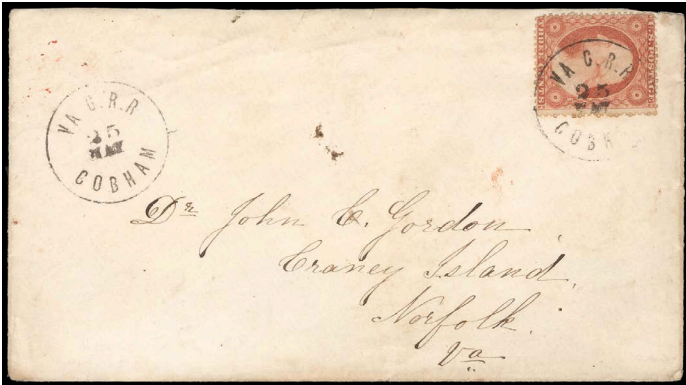 VA C.R.R
25
MAY
COBHAM
VA C.R.R
25
MAY
COBH
Dr John C. Gordon
Craney Island,
Norfolk.
Va